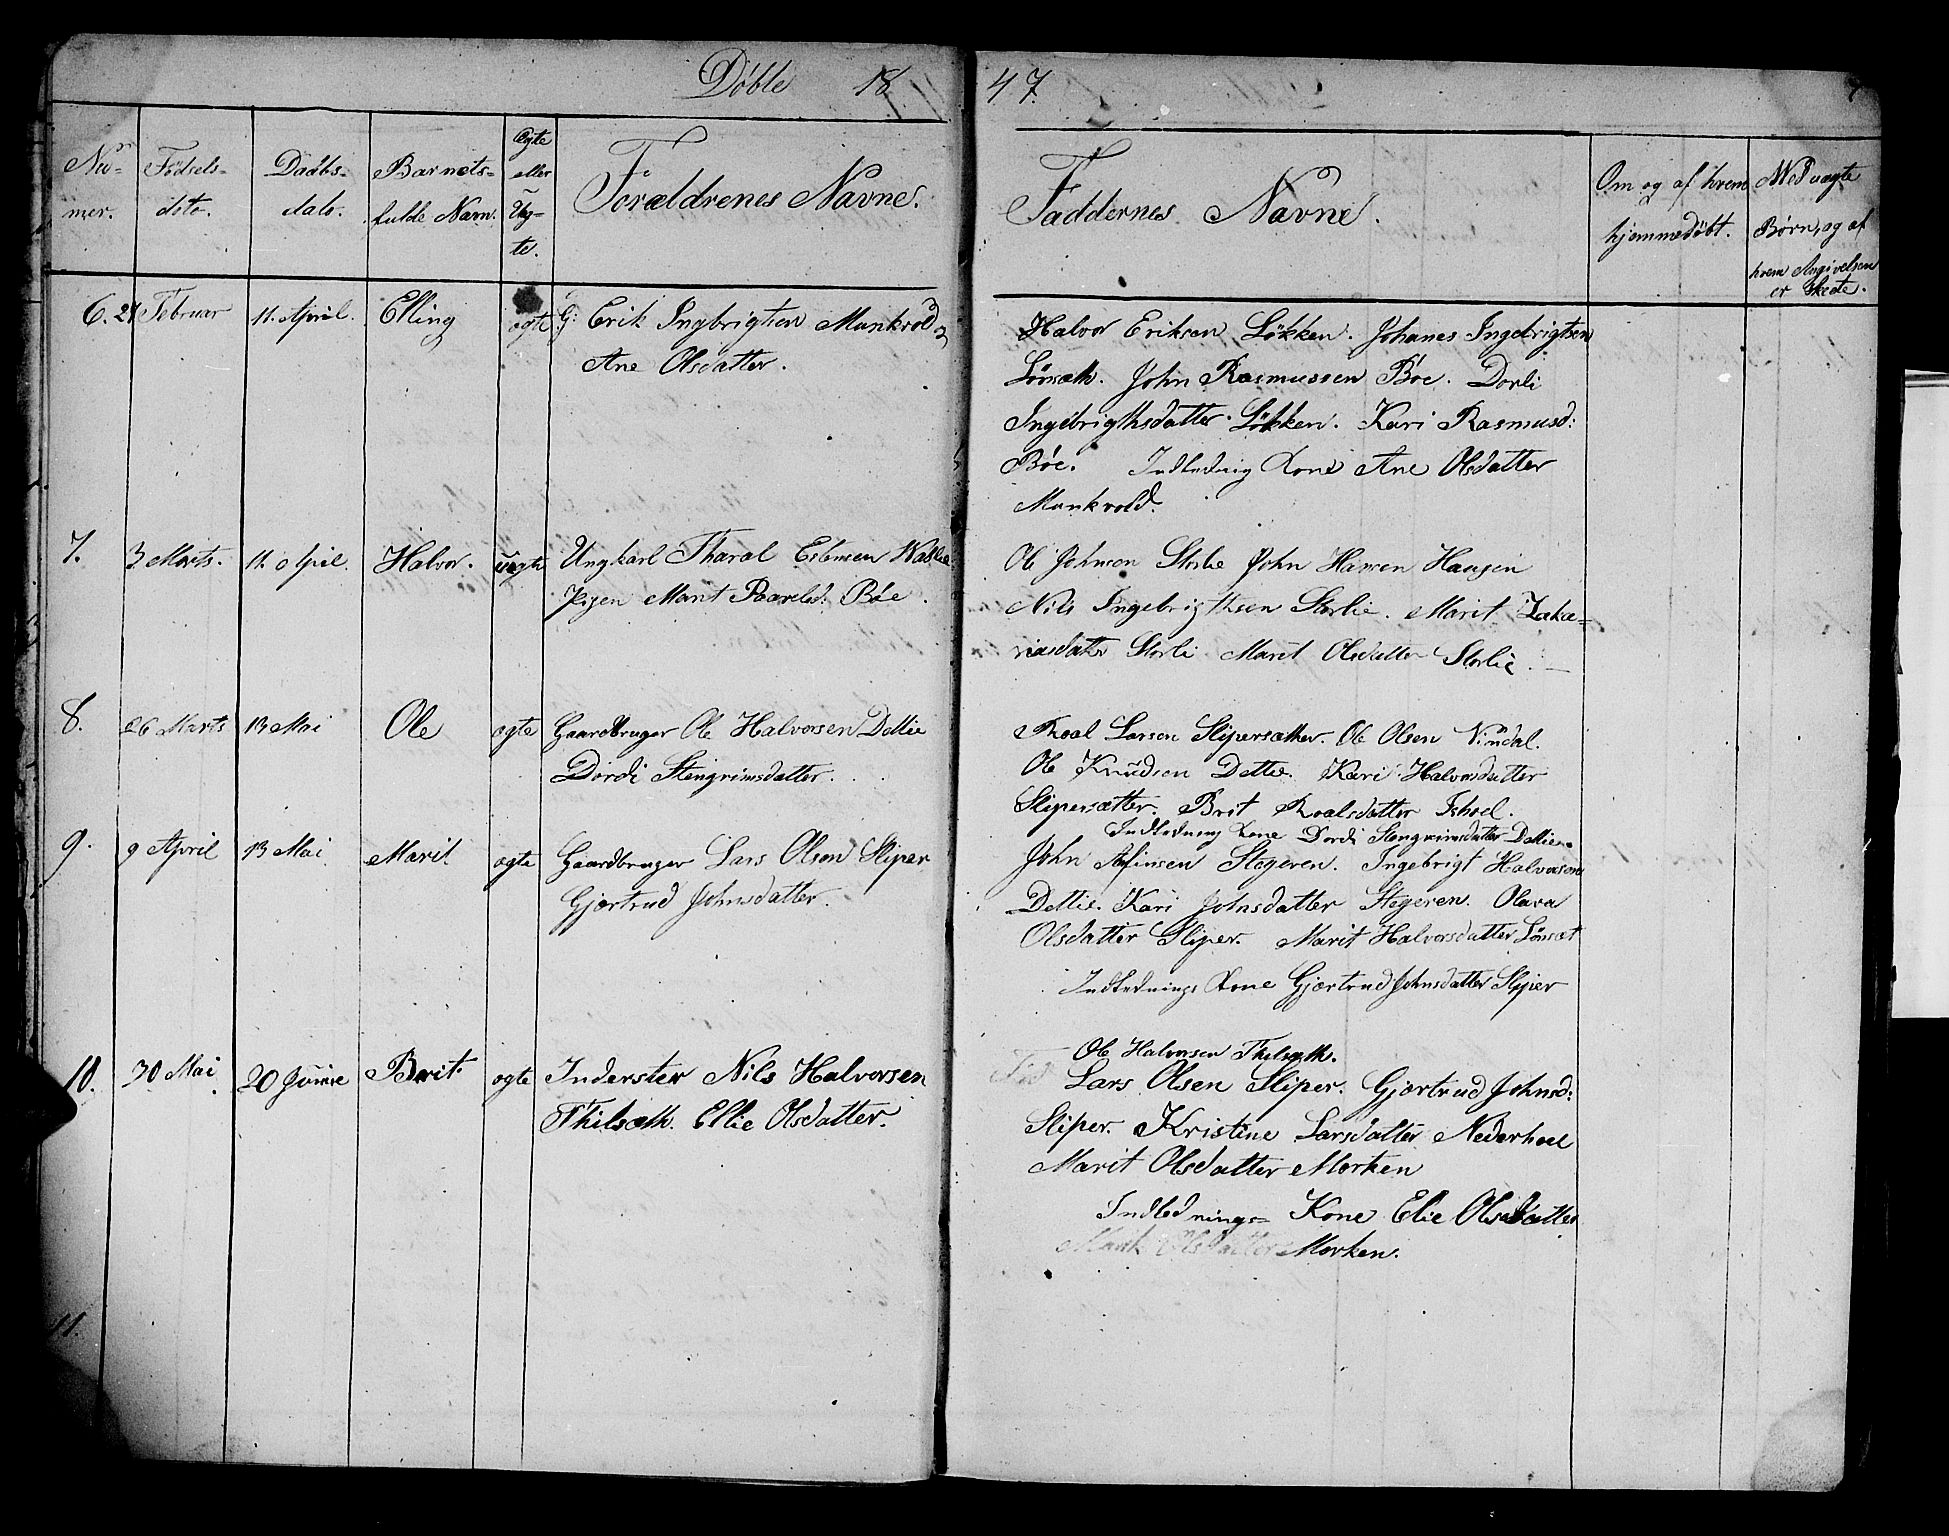 Døbte 1847.
Nu- mer.
Fødsels- dato.
Daabs- dato.
Barnets- fulde Navn.
Ægte eller Uæg- te.
Forældrenes Navne.
Faddernes Navne.
Om og af hvem hjemmedøbt.
Med uægte Børn, og af hvem Angivelsen er skede.
6. 21 Februar 11. April. Elling ægte G: Erik Ingbrigtsen Mankvold
Ane Olsdatter.
Halvor Eriksen Løkken. Johanes Ingebrigtsen
Lönsæth. John Rasmussen Böe. Dorli
Ingebrigthsdatter Løkken. Kari Rasmusd:
Böe. Indledning Kone Ane Olsdatter
Mankvold.
7. 3 Marts. 11. April. Halvor. uægte Ungkarl Tharal Esbensen
Pigen Marit Paavelsd: Böe.
Ole Johnson Storlie John Hansen Haugen
Nils Ingebrigthsen Storlie. Marit Zaka-
riasdatter Storli Marit Olsdatter Storlie.
8. 26 Marts 13 Mai Ole ægte Gaardbruger Ole Halvorsen Dettlie
Dordi Stengrimsdatter.
Roal Larsen Slipersæther. Ole Olsen Vindal.
Ole Knudsen Detlie. Kari Halvorsdatter
Slipersætter. Brit Roalsdatter Ishoel.
Indledning Kone Dordi Stengrimsdatter Detlien
9. 9 April 13 Mai Marit ægte Gaardbruger Lars Olsen Sliper
Gjertrud Johnsdatter.
John Arfinsen Stegeren. Ingebrigt Halvorsen
Detlie. Kari Johnsdatter Stegeren. Olava
Olsdatter Sliper. Marit Halvorsdatter Lönset
Indlednings Kone Gjertrud Johnsdatter Sliper
10. 30 Mai 20 Junie Berit ægte Inderster Nils Halvorsen
Thilsæth. Ellie Olsdatter.
Ole Halvorsen Thilsæth.
Lars Olsen Sliper. Gjertrud Johnsd:
Sliper. Kristine Larsdatter Nederhoel
Marit Olsdatter Morken
Indlednings- Kone Elie Olsdatter
Marit Olsdatter Morken.
11.